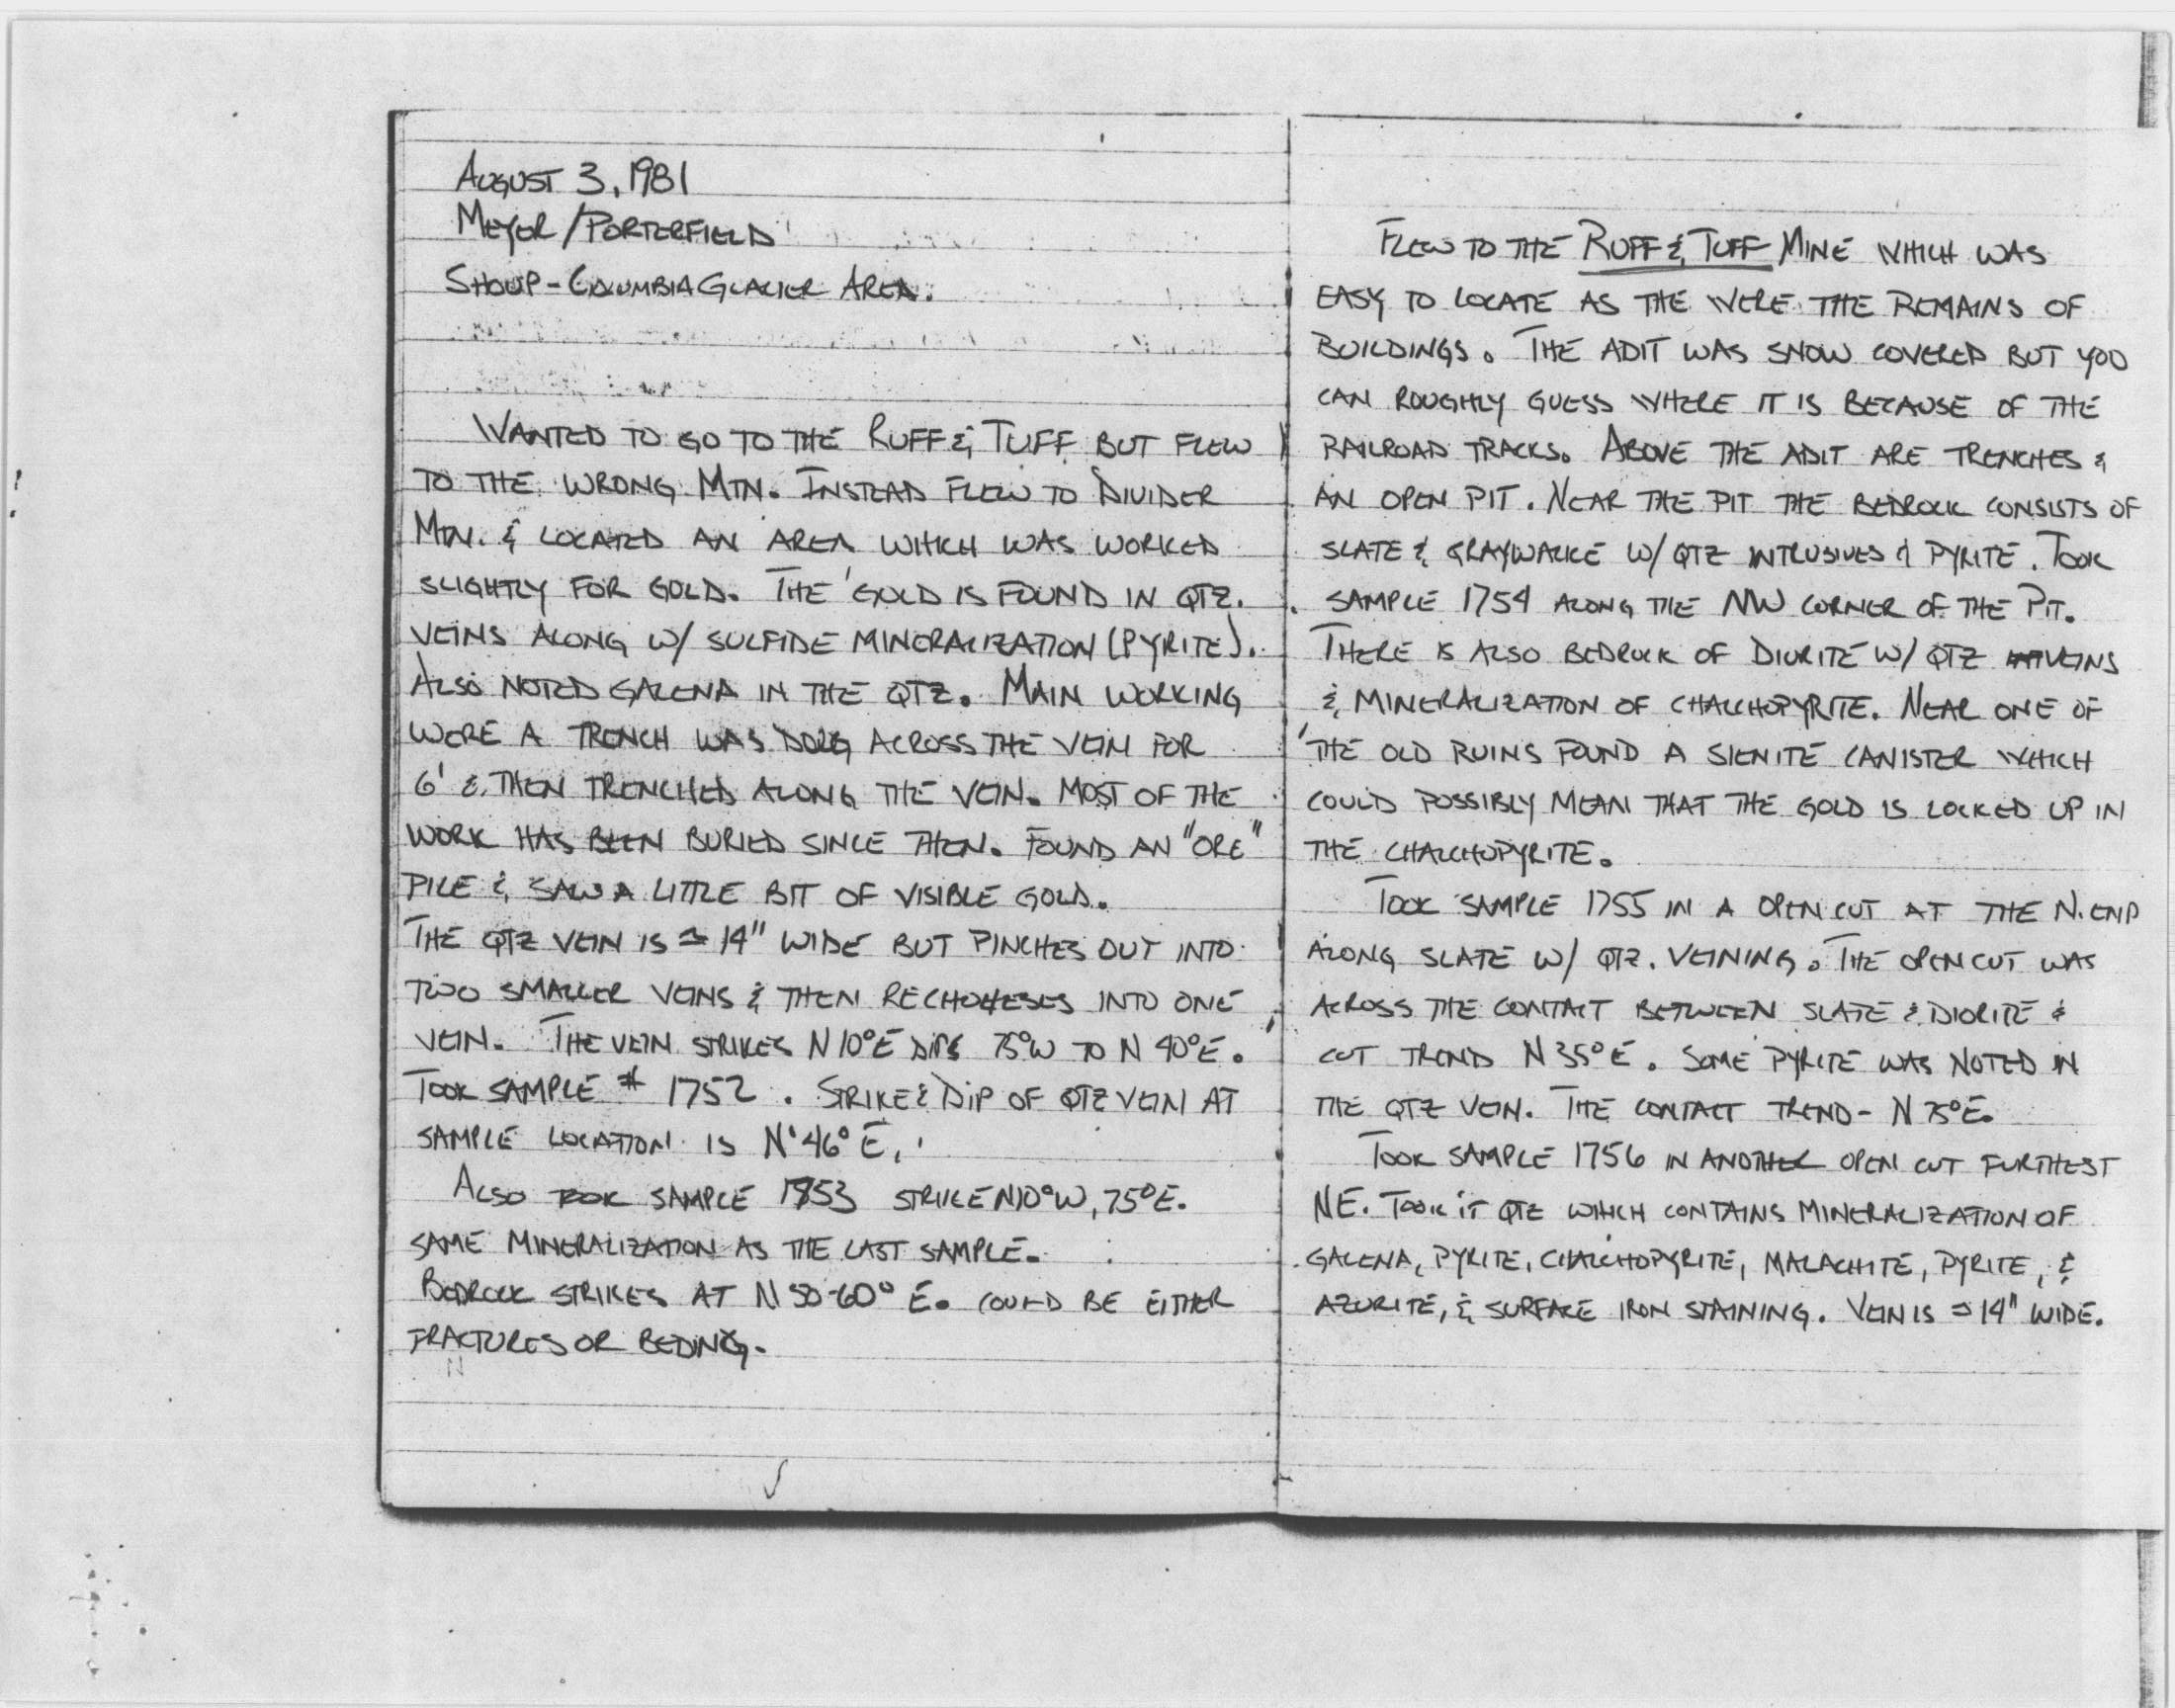 AUGUST 3, 1981
MEYER/PORTERFIELD
SHOUP-COLUMBIA GLACIER AREA.
WANTED TO GO TO THE RUFF & TUFF BUT FLEW
TO THE WRONG MTN. INSTEAD FLEW TO DIVIDER
MTN. & LOCATED AN AREA WHICH WAS WORKED
SLIGHTLY FOR GOLD. THE GOLD IS FOUND IN QTZ.
VEINS ALONG W/ SULFIDE MINERALIZATION (PYRITE).
ALSO NOTED GALENA IN THE QTZ. MAIN WORKING
WERE A TRENCH WAS DUG ACROSS THE VEIN FOR
6' & THEN TRENCHED ALONG THE VEIN. MOST OF THE
WORK HAS BEEN BURIED SINCE THEN. FOUND AN "ORE"
PILE & SAW A LITTLE BIT OF VISIBLE GOLD.
THE QTZ VEIN IS ≃ 14" WIDE BUT PINCHES OUT INTO
TWO SMALLER VEINS & THEN INTO ONE
VEIN. THE VEIN STRIKES N 10°E DIPS 75°W TO N 40°E.
TOOK SAMPLE # 1752. STRIKE & DIP OF QTZ VEIN AT
SAMPLE LOCATION IS N 46° E,
ALSO TOOK SAMPLE STRIKE N10°W, 75°E.
SAME MINERALIZATION AS THE LAST SAMPLE.
BEDROCK STRIKES AT N 50-60° E. COULD BE EITHER
FRACTURES OR BEDING.
FLEW TO THE RUFF & TUFF MINE WHICH WAS
EASY TO LOCATE AS THE WERE THE REMAINS OF
BUILDINGS. THE ADIT WAS SNOW COVERED BUT YOU
CAN ROUGHLY GUESS WHERE IT IS BECAUSE OF THE
RAILROAD TRACKS. ABOVE THE ADIT ARE TRENCHES &
AN OPEN PIT. NEAR THE PIT THE BEDROCK CONSISTS OF
SLATE & GRAYWACKE W/ QTZ INTRUSIVES & PYRITE. TOOK
SAMPLE 1754 ALONG THE NW CORNER OF THE PIT.
THERE IS ALSO BEDROCK OF DIORITE W/ QTZ VEINS
& MINERALIZATION OF CHALCHOPYRITE. NEAR ONE OF
THE OLD RUINS FOUND A SIENITE CANISTER WHICH
COULD POSSIBLY MEAN THAT THE GOLD IS LOCKED UP IN
THE CHALCHOPYRITE.
TOOK SAMPLE 1755 IN A OPEN CUT AT THE N. END
ALONG SLATE W/ QTZ. VEINING. THE OPEN CUT WAS
ACROSS THE CONTACT BETWEEN SLATE & DIORITE &
CUT TREND N 35° E. SOME PYRITE WAS NOTED IN
THE QTZ VEIN. THE CONTACT TREND - N 75°E.
TOOK SAMPLE 1756 IN ANOTHER OPEN CUT FURTHEST
NE. TOOK IT QTZ WHICH CONTAINS MINERALIZATION OF
GALENA, PYRITE, CHALCHOPYRITE, MALACHITE, PYRITE, &
AZURITE, & SURFACE IRON STAINING. VEIN IS ≃ 14" WIDE.